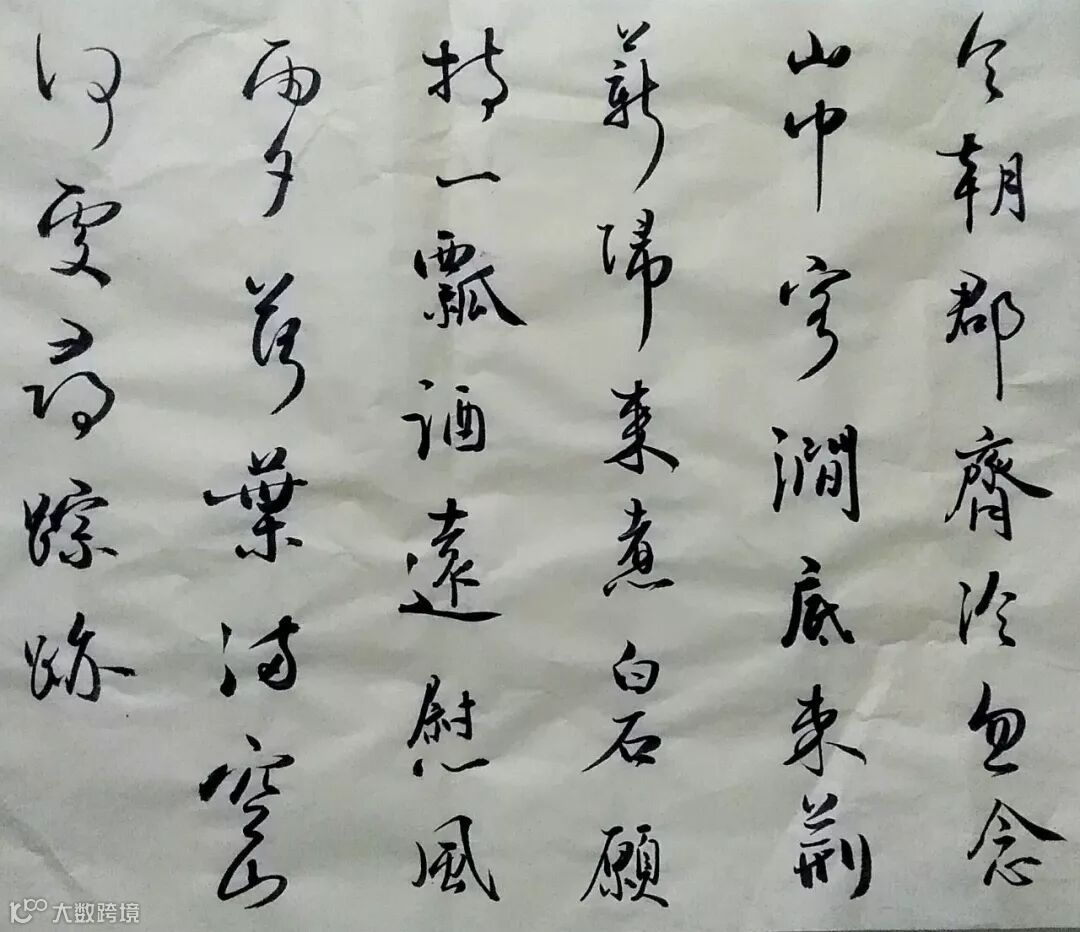 今朝郡齊冷忽念
山中客澗底束荆
薪歸來煮白石願
持一瓢酒遠慰風
雨夕落葉滿空山
何處尋踪跡
大数跨境